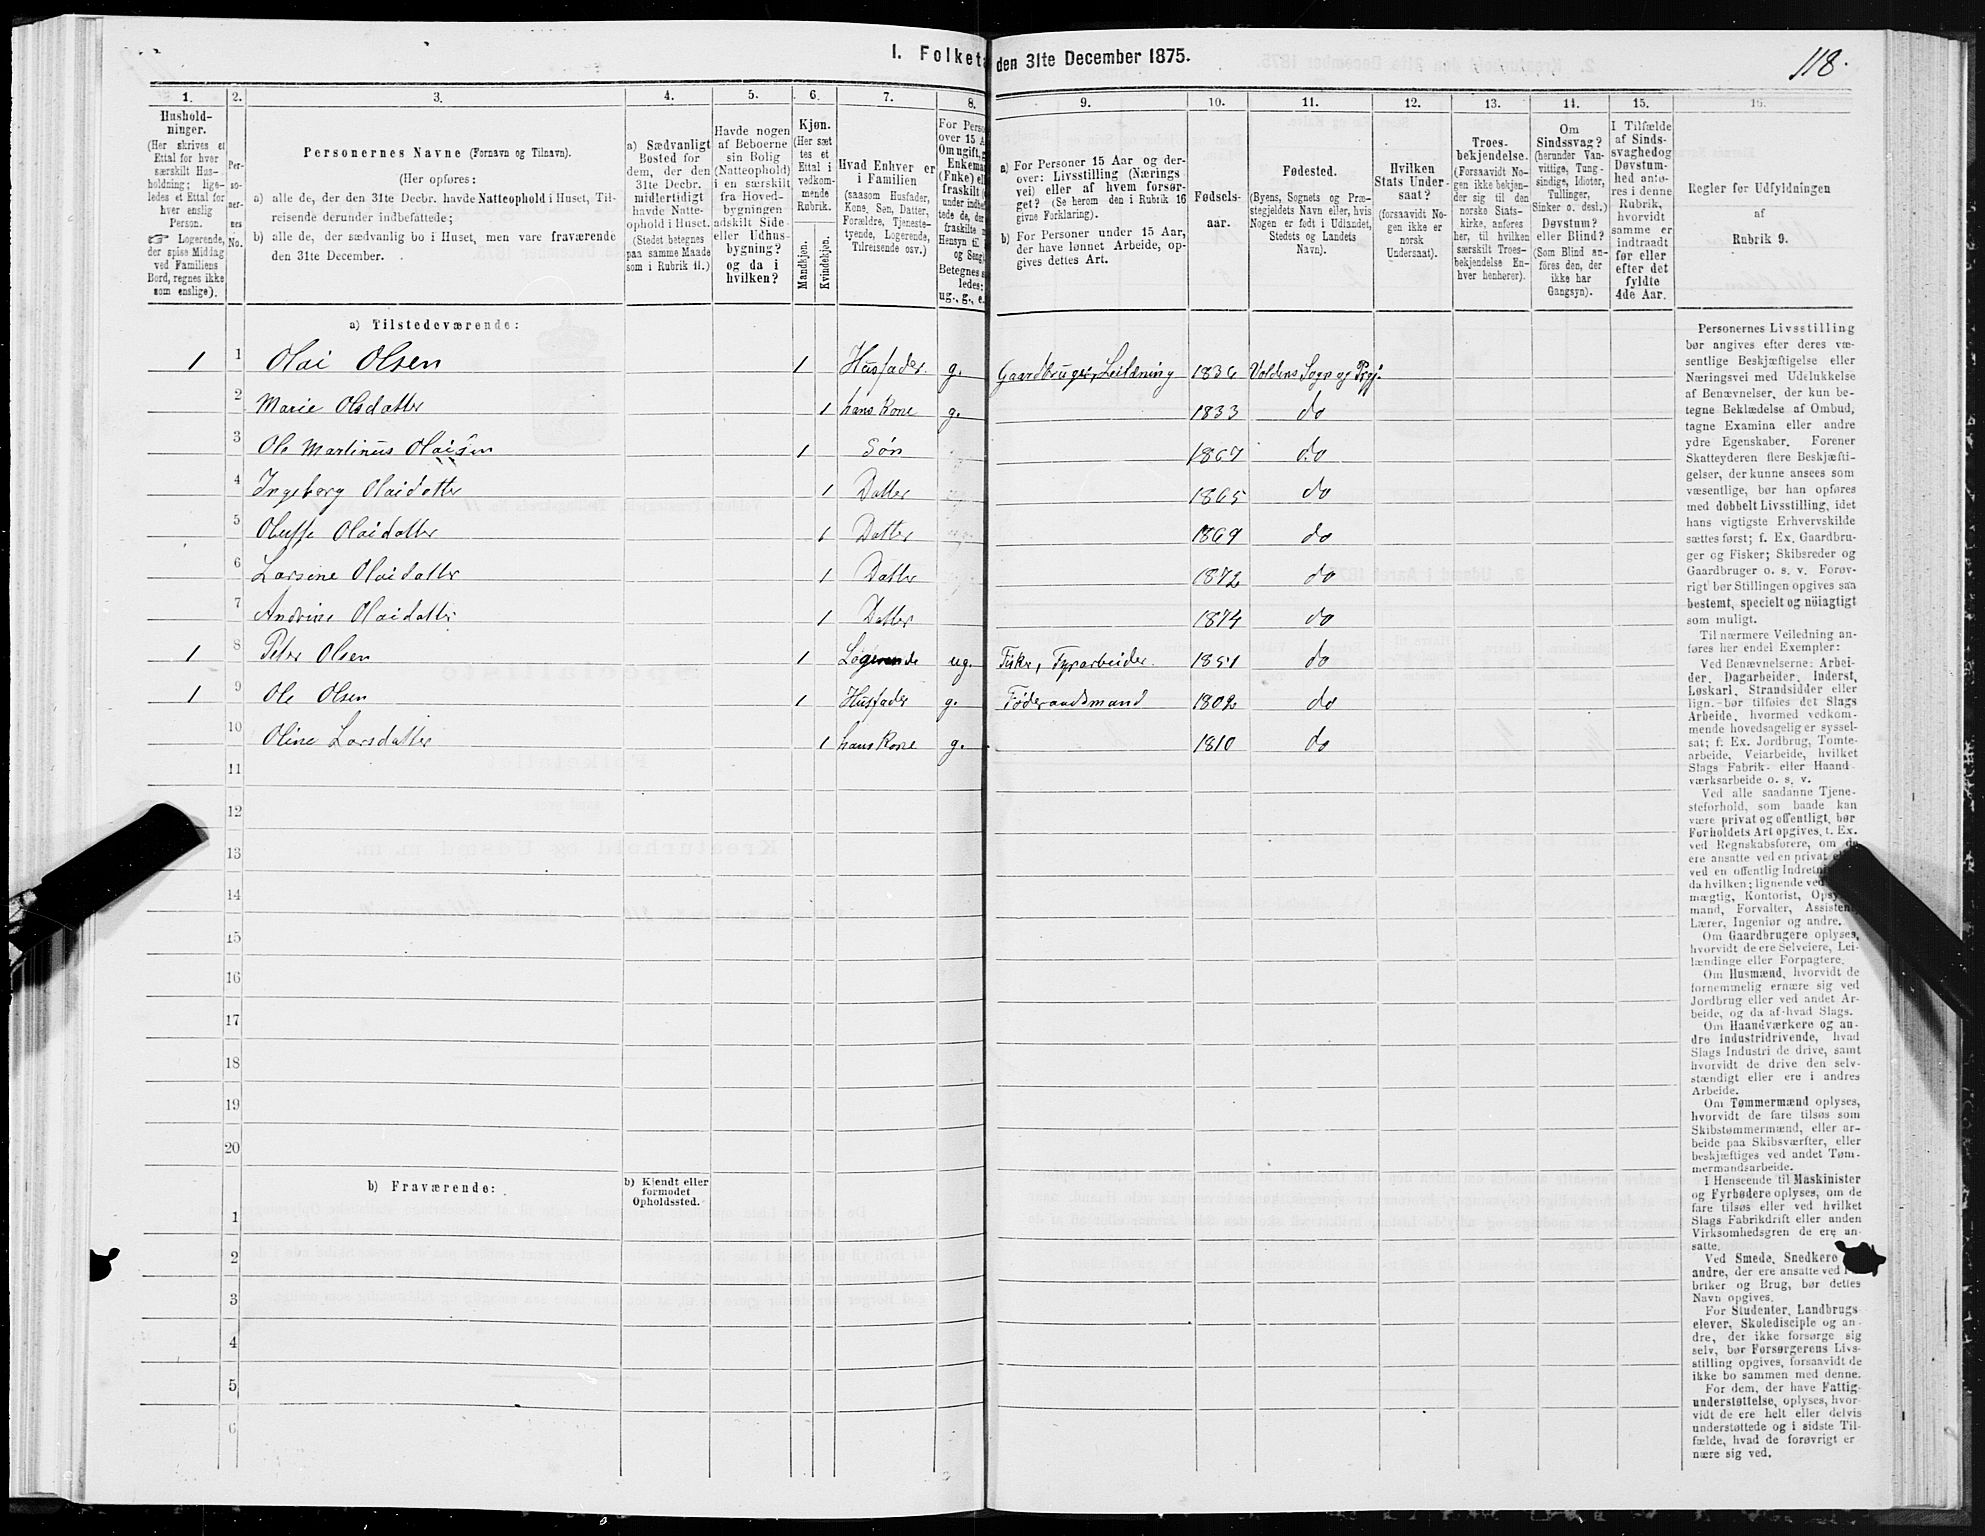 I. Folketæ den 31te December 1875.
118.
1. 2. 3. 4. 5. 6. 7. 8. 9. 10. 11. 12. 13. 14. 15. 16.
Hushold-
ninger.
(Her skrives et
Ettal for hver
særskilt Hus-
holdning; lige-
ledes et Ettal for
hver enslig
Person.
☞ Logerende,
der spise Middag
ved Familiens
Bord, regnes ikke
som enslige).
Per-
so-
ner-
nes
No.
Personernes Navne (Fornavn og Tilnavn).
(Her opføres:
a) alle de, der den 31te Decbr. havde Natteophold i Huset, Til-
reisende derunder indbefattede;
b) alle de, der sædvanlig bo i Huset, men vare fraværende
den 31te December.
a) Sædvanligt
Bosted for
dem, der den
31te Decbr.
midlertidigt
havde Natte-
ophold i Huset.
(Stedet betegnes
paa samme Maade
som i Rubrik 11.)
Havde nogen
af Beboerne
sin Bolig
(Natteophold)
i en særskilt
fra Hoved-
bygningen
adskilt Side-
eller Udhus-
bygning?
og da i
hvilken?
Kjøn.
(Her sæt
tes et
Ettal i
vedkom-
mende
Rubrik.
Mandkjøn.
Kvindekjøn.
Hvad Enhver er
i Familien
(saasom Husfader,
Kone, Søn, Datter,
Forældre, Tjeneste-
tyende, Logerende,
Tilreisende osv.)
For Perso
over 15 A
Om ugift, g
Enkema
(Enke) el
fraskilt
under indbef
tede de, der
fraskilte
Hensyn til
og Seng
Betegnes s
ledes:
ug., g., e.
a) For Personer 15 Aar og der-
over: Livsstilling (Nærings
vei) eller af hvem forsør-
get? (Se herom den i Rubrik 16
givne Forklaring).
b) For Personer under 15 Aar,
der have lønnet Arbeide, op-
gives dettes Art.
Fødsels-
aar.
Fødested.
(Byens, Sognets og Præ-
stegjeldets Navn eller, hvis
Nogen er født i Udlandet,
Stedets og Landets
Navn).
Hvilken
Stats Under-
saat?
(forsaavidt No-
gen ikke er
norsk
Undersaat).
Troes-
bekjendelse.
(Forsaavidt No-
gen ikke bekjen-
der sig til den
norske Stats-
kirke, anføres
her, til hvilken
særskilt Troes-
bekjendelse En-
hver henhører).
Om
Sindssvag?
(herunder Van-
vittige, Tung-
sindige, Idioter,
Tullinger,
Sinker o. desl.)
Døvstum?
eller Blind?
(Som Blind an-
føres den, der
ikke har
Gangsyn).
I Tilfælde
af Sinds-
svaghed og
Døvstum-
hed anfø-
res i denne
Rubrik,
hvorvidt
samme er
indtraadt
før eller
efter det
fyldte
4de Aar.
Regler for Udfyldningen
af
Rubrik 9.
a) Tilstedeværende:
1 1 Olai Olsen 1 Husfader. g. Gaardbruger, Leilænding 1836 Voldens Sogn og Prgj.
2 Marie Olsdatter 1 hans Kone g. 1833 do
3 Ole Martinus Olaisen 1 Søn 1867 do
4 Ingeborg Olaidatter 1 Datter 1865 do
5 Oluffe Olaidatter 1 Datter 1869 do
6 Larsine Olaidatter 1 Datter 1872 do
7 Andrine Olaidatter 1 Datter 1874 do
1 8 Peter Olsen 1 Logerende ug. Fisker, 1851 do
1 9 Ole Olsen 1 Husfader g. Føderaadsmand 1802 do
10 Oline Larsdatter 1 hans Kone g. 1810 do
11
12
13
14
15
16
17
18
19
20
b) Fraværende:
b) Kjendt eller
formodet
Opholdssted.
1
2
3
4
5
6
Personernes Livsstilling
bør angives efter deres væ-
sentlige Beskjæftigelse eller
Næringsvei med Udelukkelse
af Benævnelser, der kun be-
tegne Beklædelse af Ombud,
tagne Examina eller andre
ydre Egenskaber. Forener
Skatteyderen flere Beskjæfti-
gelser, der kunne ansees som
væsentlige, bør han opføres
med dobbelt Livsstilling, idet
hans vigtigste Erhvervskilde
sættes først; f. Ex. Gaardbru-
ger og Fisker; Skibsreder og
Gaardbruger o. s. v. Forøv-
rigt bør Stillingen opgives saa
bestemt, specielt og nöiagtigt
som muligt.
Til nærmere Veiledning an-
føres her endel Exempler:
Ved Benævnelserne: Arbei-
der, Dagarbeider, Inderst,
Løskarl, Strandsidder eller
lign. bør tilføies det Slags
Arbeide, hvormed vedkom-
mende hovedsagelig er syssel-
sat; f. Ex. Jordbrug, Tomte-
arbeide, Veiarbeide, hvilket
Slags Fabrik- eller Haand-
værksarbeide o. s. v.
Ved alle saadanne Tjene-
steforhold, som baade kan
være privat og offentligt, bør
Forholdets Art opgives, t. Ex.
ved Regnskabsførere, om de
ere ansatte ved en privat el
ved en offentlig Indretni
da hvilken; lignende ved
mægtig, Kontorist, Opsy
mand, Forvalter, Assistent
Lærer, Ingeniør og andre.
Om Gaardbrugere oplyses,
hvorvidt de ere Selveiere, Lei-
lændinge eller Forpagtere.
Om Husmænd, hvorvidt de
fornemmelig ernære sig ved
Jordbrug eller ved andet Ar-
beide, og da af hvad Slags.
Om Haandværkere og an-
dre Industridrivende, hvad
Slags Industri de drive, samt
hvorvidt de drive den selv-
stændigt eller ere i andres
Arbeide.
Om Tømmermænd oplyses,
hvorvidt de fare tilsøs som
Skibstømmermænd, eller ar-
beide paa Skibsværfter, eller
beskjæftiges ved andet Tøm-
mermandsarbeide.
I Henseende til Maskinister
og Fyrbødere oplyses, om de
fare tilsøs eller ved hvilket
Slags Fabrikdrift eller anden
Virksomhedsgren de ere an-
satte.
Ved Smede, Snedkere
andre, der ere ansatte ved
briker og Brug, bør dettes
Navn opgives.
For Studenter, Landbrugs
elever, Skoledisciple og an-
dre, der ikke forsørge sig
selv, bør Forsørgerens Livs-
stilling opgives, forsaavidt de
ikke bo sammen med denne.
For dem, der have Fattig-
understøttelse, oplyses, hvor-
vidt de ere helt eller delvis
understøttede og i sidste Til-
fælde, hvad de forøvrigt er-
nære sig ved.